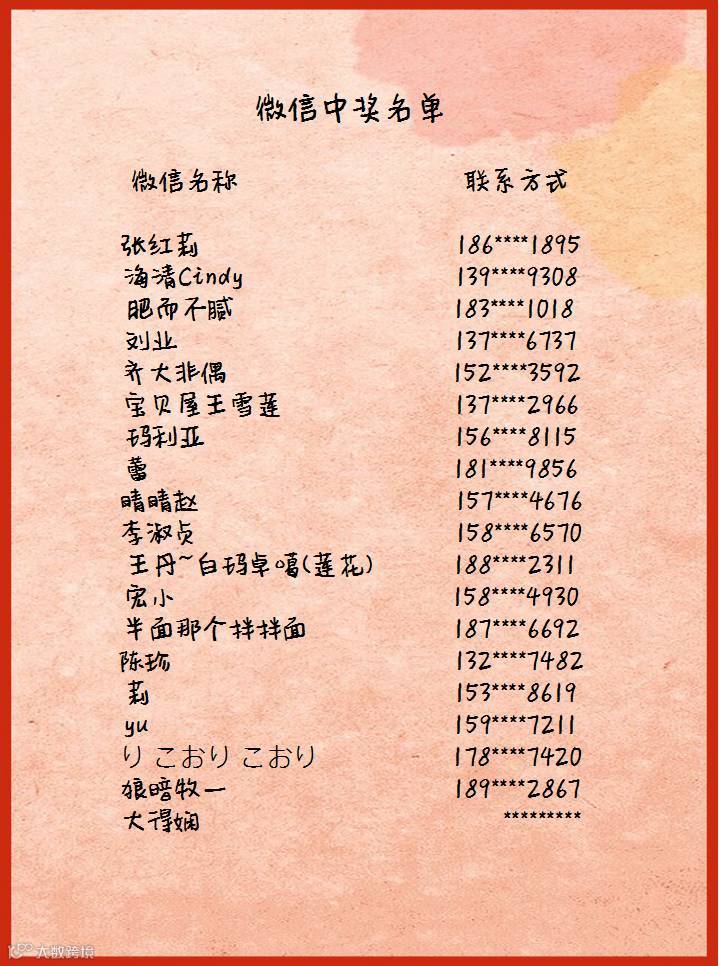 微信中奖名单
微信名称 联系方式
张红莉 186****1895
海清Cindy 139****9308
肥而不腻 183****1018
刘业 137****6737
齐大非偶 152****3592
宝贝屋王雪莲 137****2966
玛利亚 156****8115
蕾 181****9856
晴晴赵 157****4676
李淑贞 158****6570
王丹~白玛卓噶(莲花) 188****2311
宏小 158****4930
半面那个拌拌面 187****6692
陈珍 132****7482
莉 153****8619
yu 159****7211
り こおり こおり 178****7420
狼暗牧一 189****2867
大得娴 *********
大数跨境